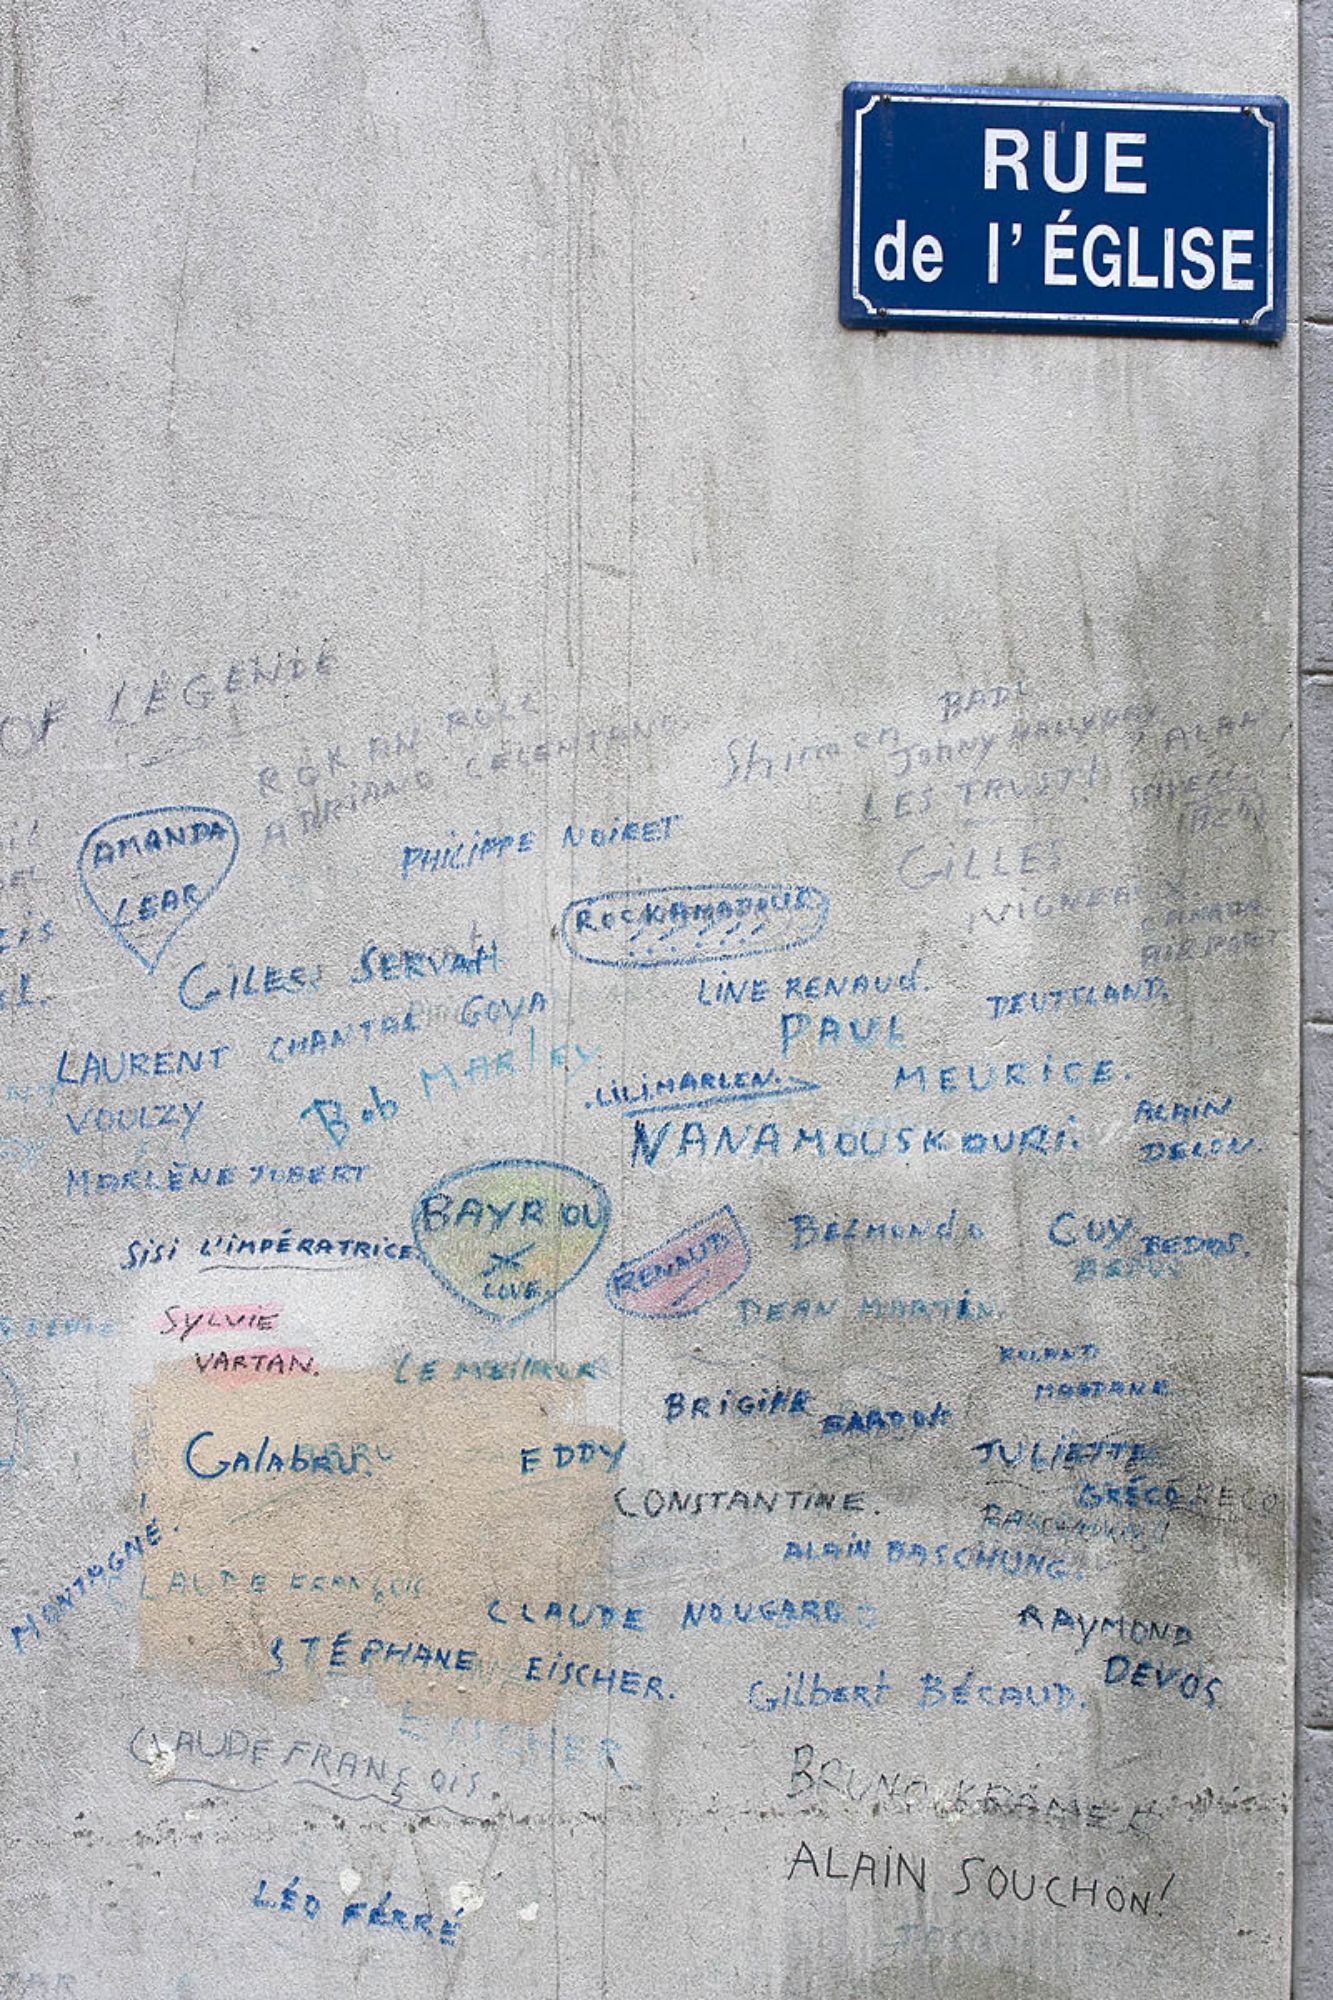 RUE
de l'ÉGLISE
OF LÉGENDE
ROK AN ROLL
ADRIANO CELENTANO
BADI
Shimmen
JOHNY HALLYDAY
ALAN
LES TRUST
GILLES
VIGNEAUX
CANADA
AIRPORT
AMANDA
LEAR
PHILIPPE NOIRET
ROCKAMADOUR
GILES SERVAH
LINE RENAUD.
DEUTSLAND.
CHANTAL GOYA
PAUL
MEURICE.
LAURENT
VOULZY
Bob MARLEY.
LILIMARLEN.
NANAMOUSKOURI.
ALAIN
DELON.
MARLÈNE JOBERT
BAYROU
LOVE.
SiSi L'IMPÉRATRICE.
RENAUD
BELMONdo
GUY BEDOS.
BEDOS
DEAN MARTIN.
SYLVIE
VARTAN.
LE MEILLEUR
BRIGITTE BARDOT
Galabru.
EDDY
CONSTANTINE.
JULIETTE
GRÉCO
ALAIN BASCHUNG.
MONTAGNÉ.
LAUDE FRANÇOIS
CLAUDE NOUGARO
RAYMOND
DEVOS
STÉPHANE EISCHER.
Gilbert BÉCAUD.
EISCHER
CLAUDE FRANÇOIS.
BRUNO KRÄMER
ALAIN SOUCHON!
LÉO FÉRRÉ